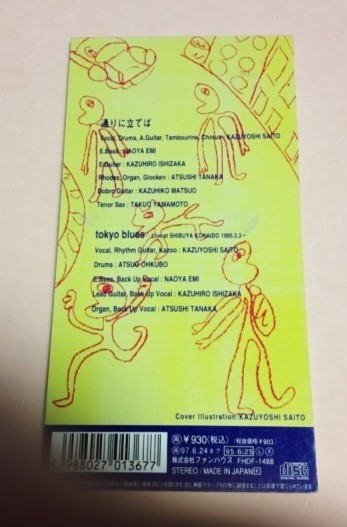 通りに立てば
Vocal, Drums, A.Guitar, Tambourine, Chorus : KAZUYOSHI SAITO
E.Bass : NAOYA EMI
E.Guitar : KAZUHIRO ISHIZAKA
Rhodes, Organ, Glocken : ATSUSHI TANAKA
Dobro Guitar : KAZUHIKO MATSUO
Tenor Sax : TAKUO YAMAMOTO
tokyo blues –Live at SHIBUYA KOKAIDO 1995.3.3–
Vocal, Rhythm Guitar, Kazoo : KAZUYOSHI SAITO
Drums : ATSUO OHKUBO
E.Bass, Back Up Vocal : NAOYA EMI
Lead Guitar, Back Up Vocal : KAZUHIRO ISHIZAKA
Organ, Back Up Vocal : ATSUSHI TANAKA
Cover Illustration KAZUYOSHI SAITO
再 ¥930(税込) (税抜価格¥903)
再 '97.6.24まで 95.6.25 L X
株式会社ファンハウス FHDF-1488
STEREO / MADE IN JAPAN
988027 013677
COMPACT disc DIGITAL AUDIO